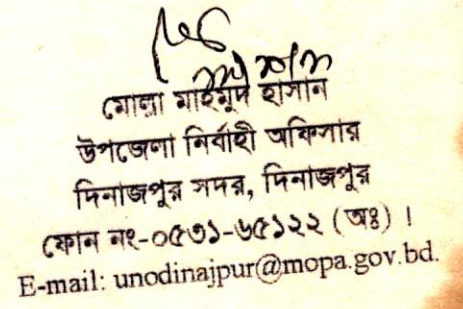 মোল্লা মাহমুদ হাসান
উপজেলা নির্বাহী অফিসার
দিনাজপুর সদর, দিনাজপুর
ফোন নং-০৫৩১-৬৫১২২ (অঃ) ।
E-mail: unodinajpur@mopa.gov.bd.